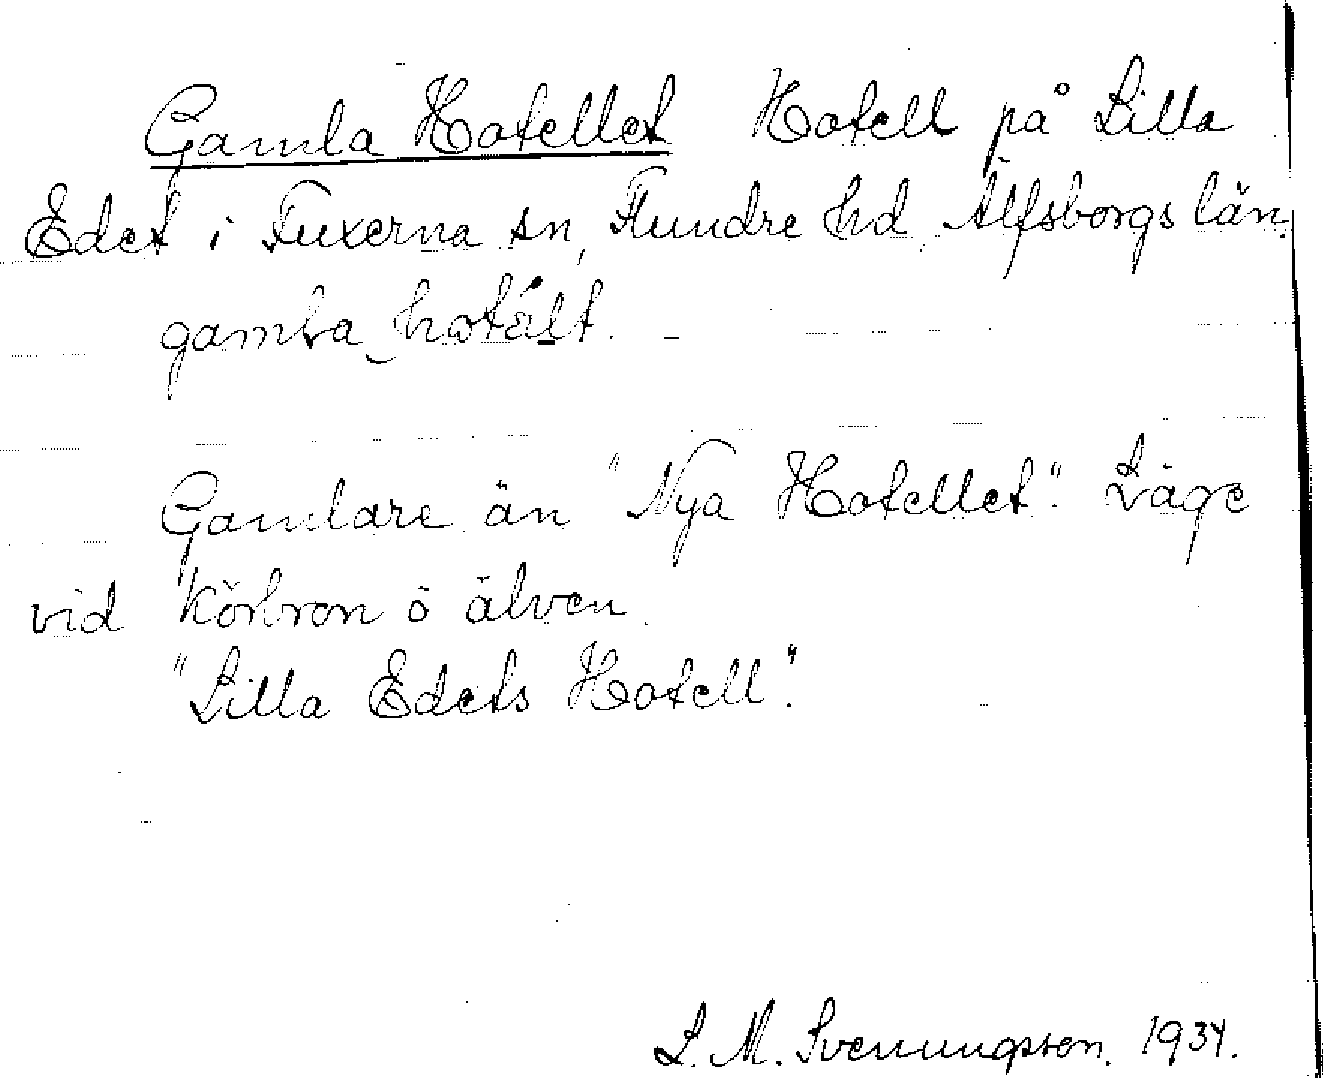 Gamla Hotellet Hotell på Lilla
Edet i Fuxerna sn, Flundre hd, Älfsborgs län.
gamla‿hotält. –
Gamlare än "Nya Hotellet". Läge
vid körbron ö älven.
"Lilla Edets Hotell".
L. M. Svenungsson. 1934.